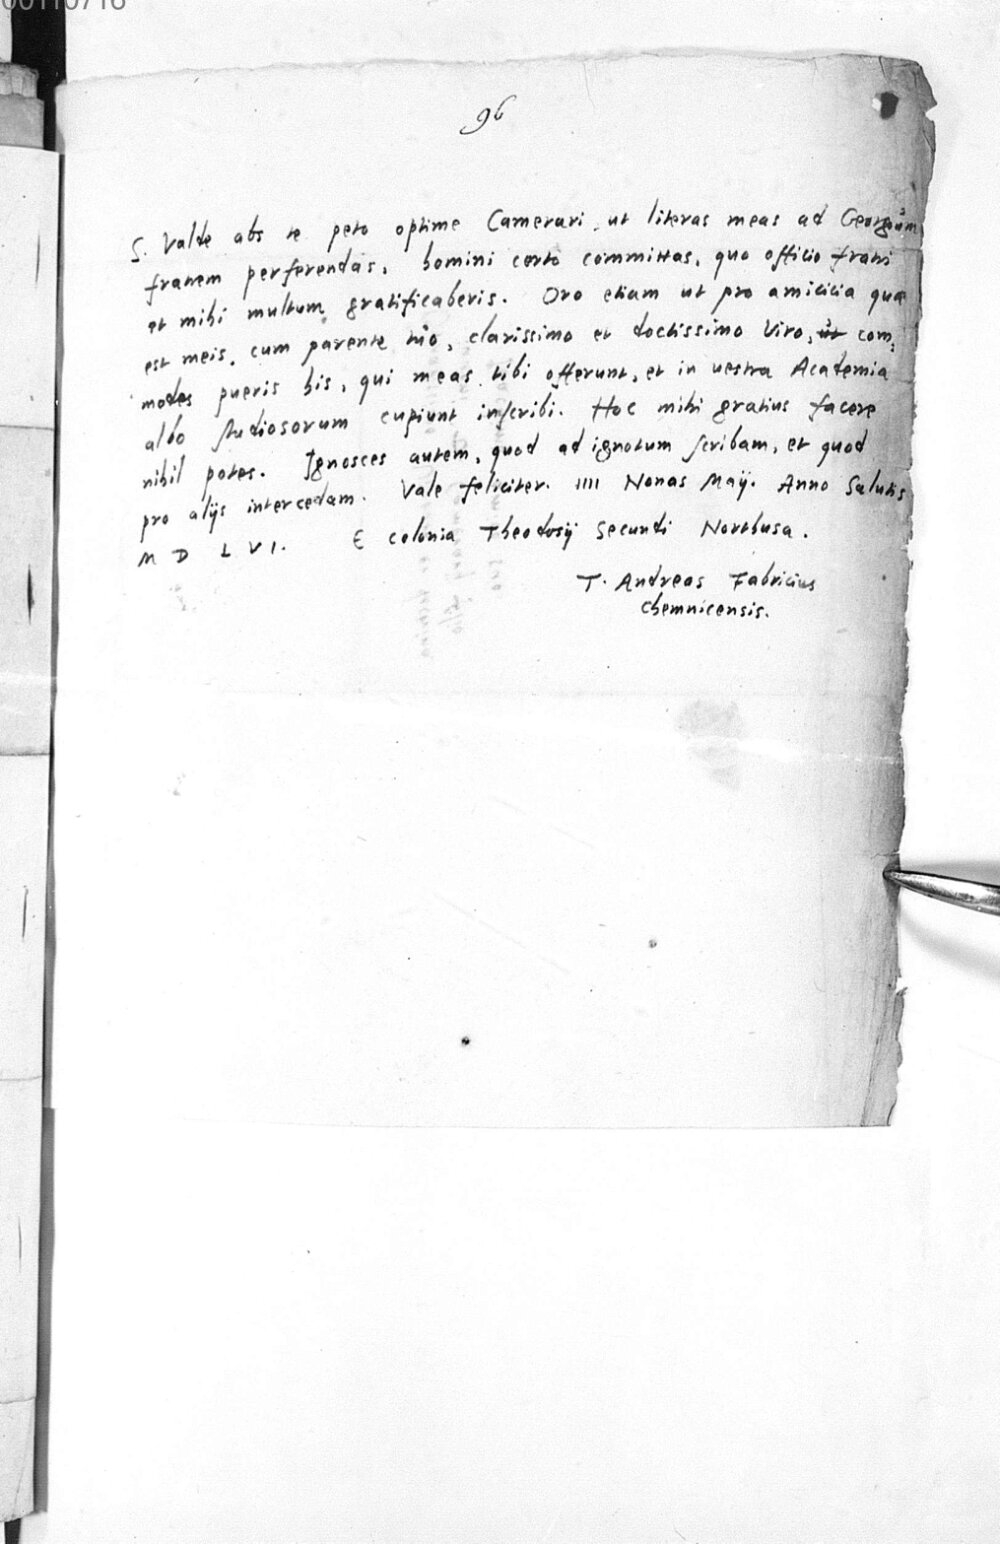 00110716
96
S. Valde abs te peto optime Camerari, ut literas meas ad Georgium
fratrem perferendas, homini certo committas, quo officio fratri
et mihi multum gratificaberis. Oro etiam ut pro amicicia quae
est meis, cum parente tuo, clarissimo et doctissimo viro, ut com:
modes pueris his, qui meas tibi offerunt, et in uestra Academia
albo studiosorum cupiunt inscribi. Hoc mihi gratius facere
nihil potes. Ignosces autem, quod ad ignotum scribam, et quod
pro alijs intercedam. Vale feliciter. IIII Nonas Maij. Anno Salutis
M D L V I. E colonia Theodosij Secundi Northusa.
T. Andreas Fabricius
Chemnicensis.